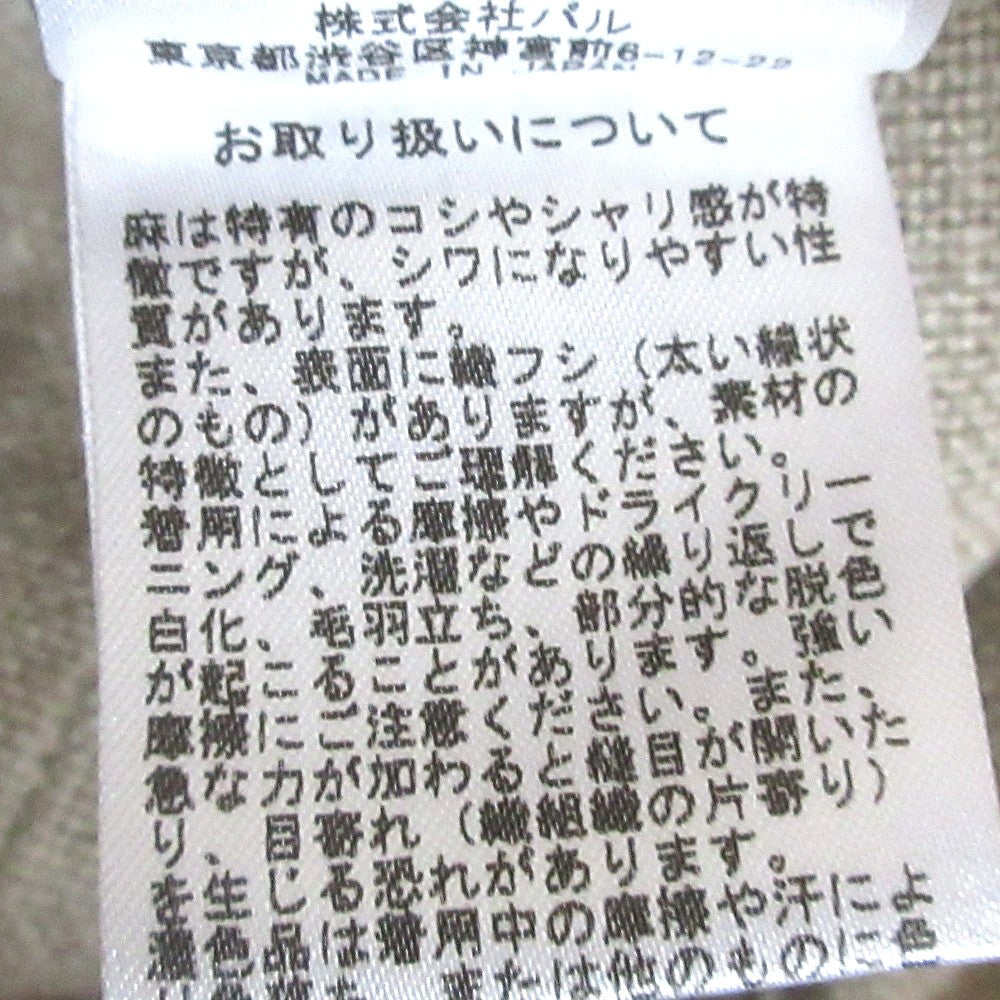 株式会社パル
東京都渋谷区神宮前6-12-22
MADE IN JAPAN
お取り扱いについて
麻は特有のコシやシャリ感が特
徴ですが、シワになりやすい性
質があります。
また、表面に繊フシ（太い線状
のもの）がありますが、素材の
特徴としてご理解ください。
着用による摩擦やドライクリー
ニング、洗濯などの繰り返しで
白化、毛羽立ち、部分的な脱色
が起こることがあります。強い
摩擦にご注意ください。また、
急な力が加わると縫目が開いた
り、目寄れ（繊組織の片寄り）
を生じる恐れがあります。
濃色品は着用中の摩擦や汗によ
または他のものに色